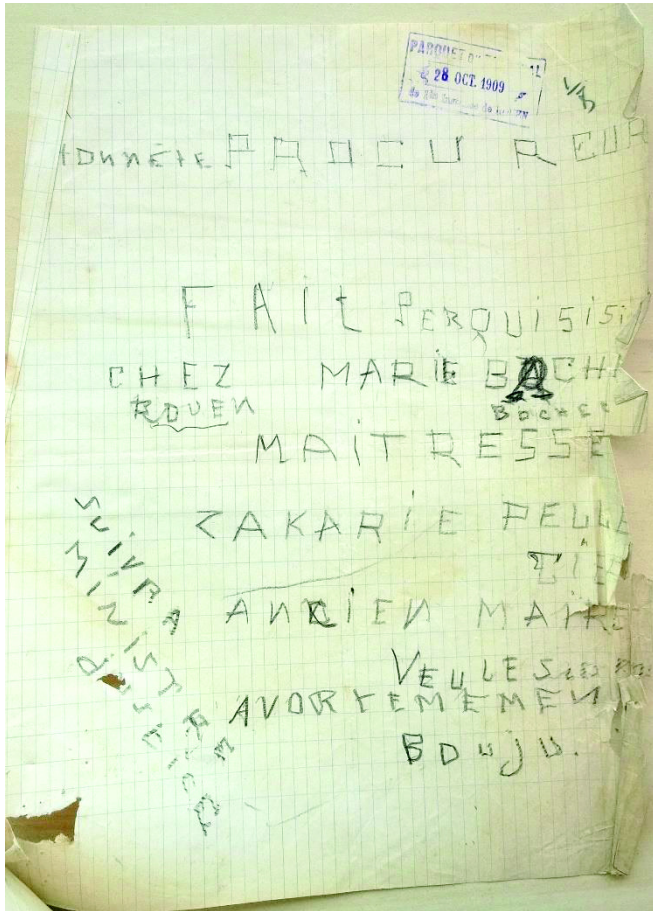 PARQUET
28 OCT. 1909
HONNÊTE PROCUREUR
FAIT PERQUISISI
CHEZ MARIE BACHE
ROUEN BOCHER
MAITRESSE
ZAKARIE PELLE
TIE
ANCIEN MAIRE
VEULES
AVORTEMEMEN
BOUJU.
SUIVRA
MINISTRE
JUSTICE